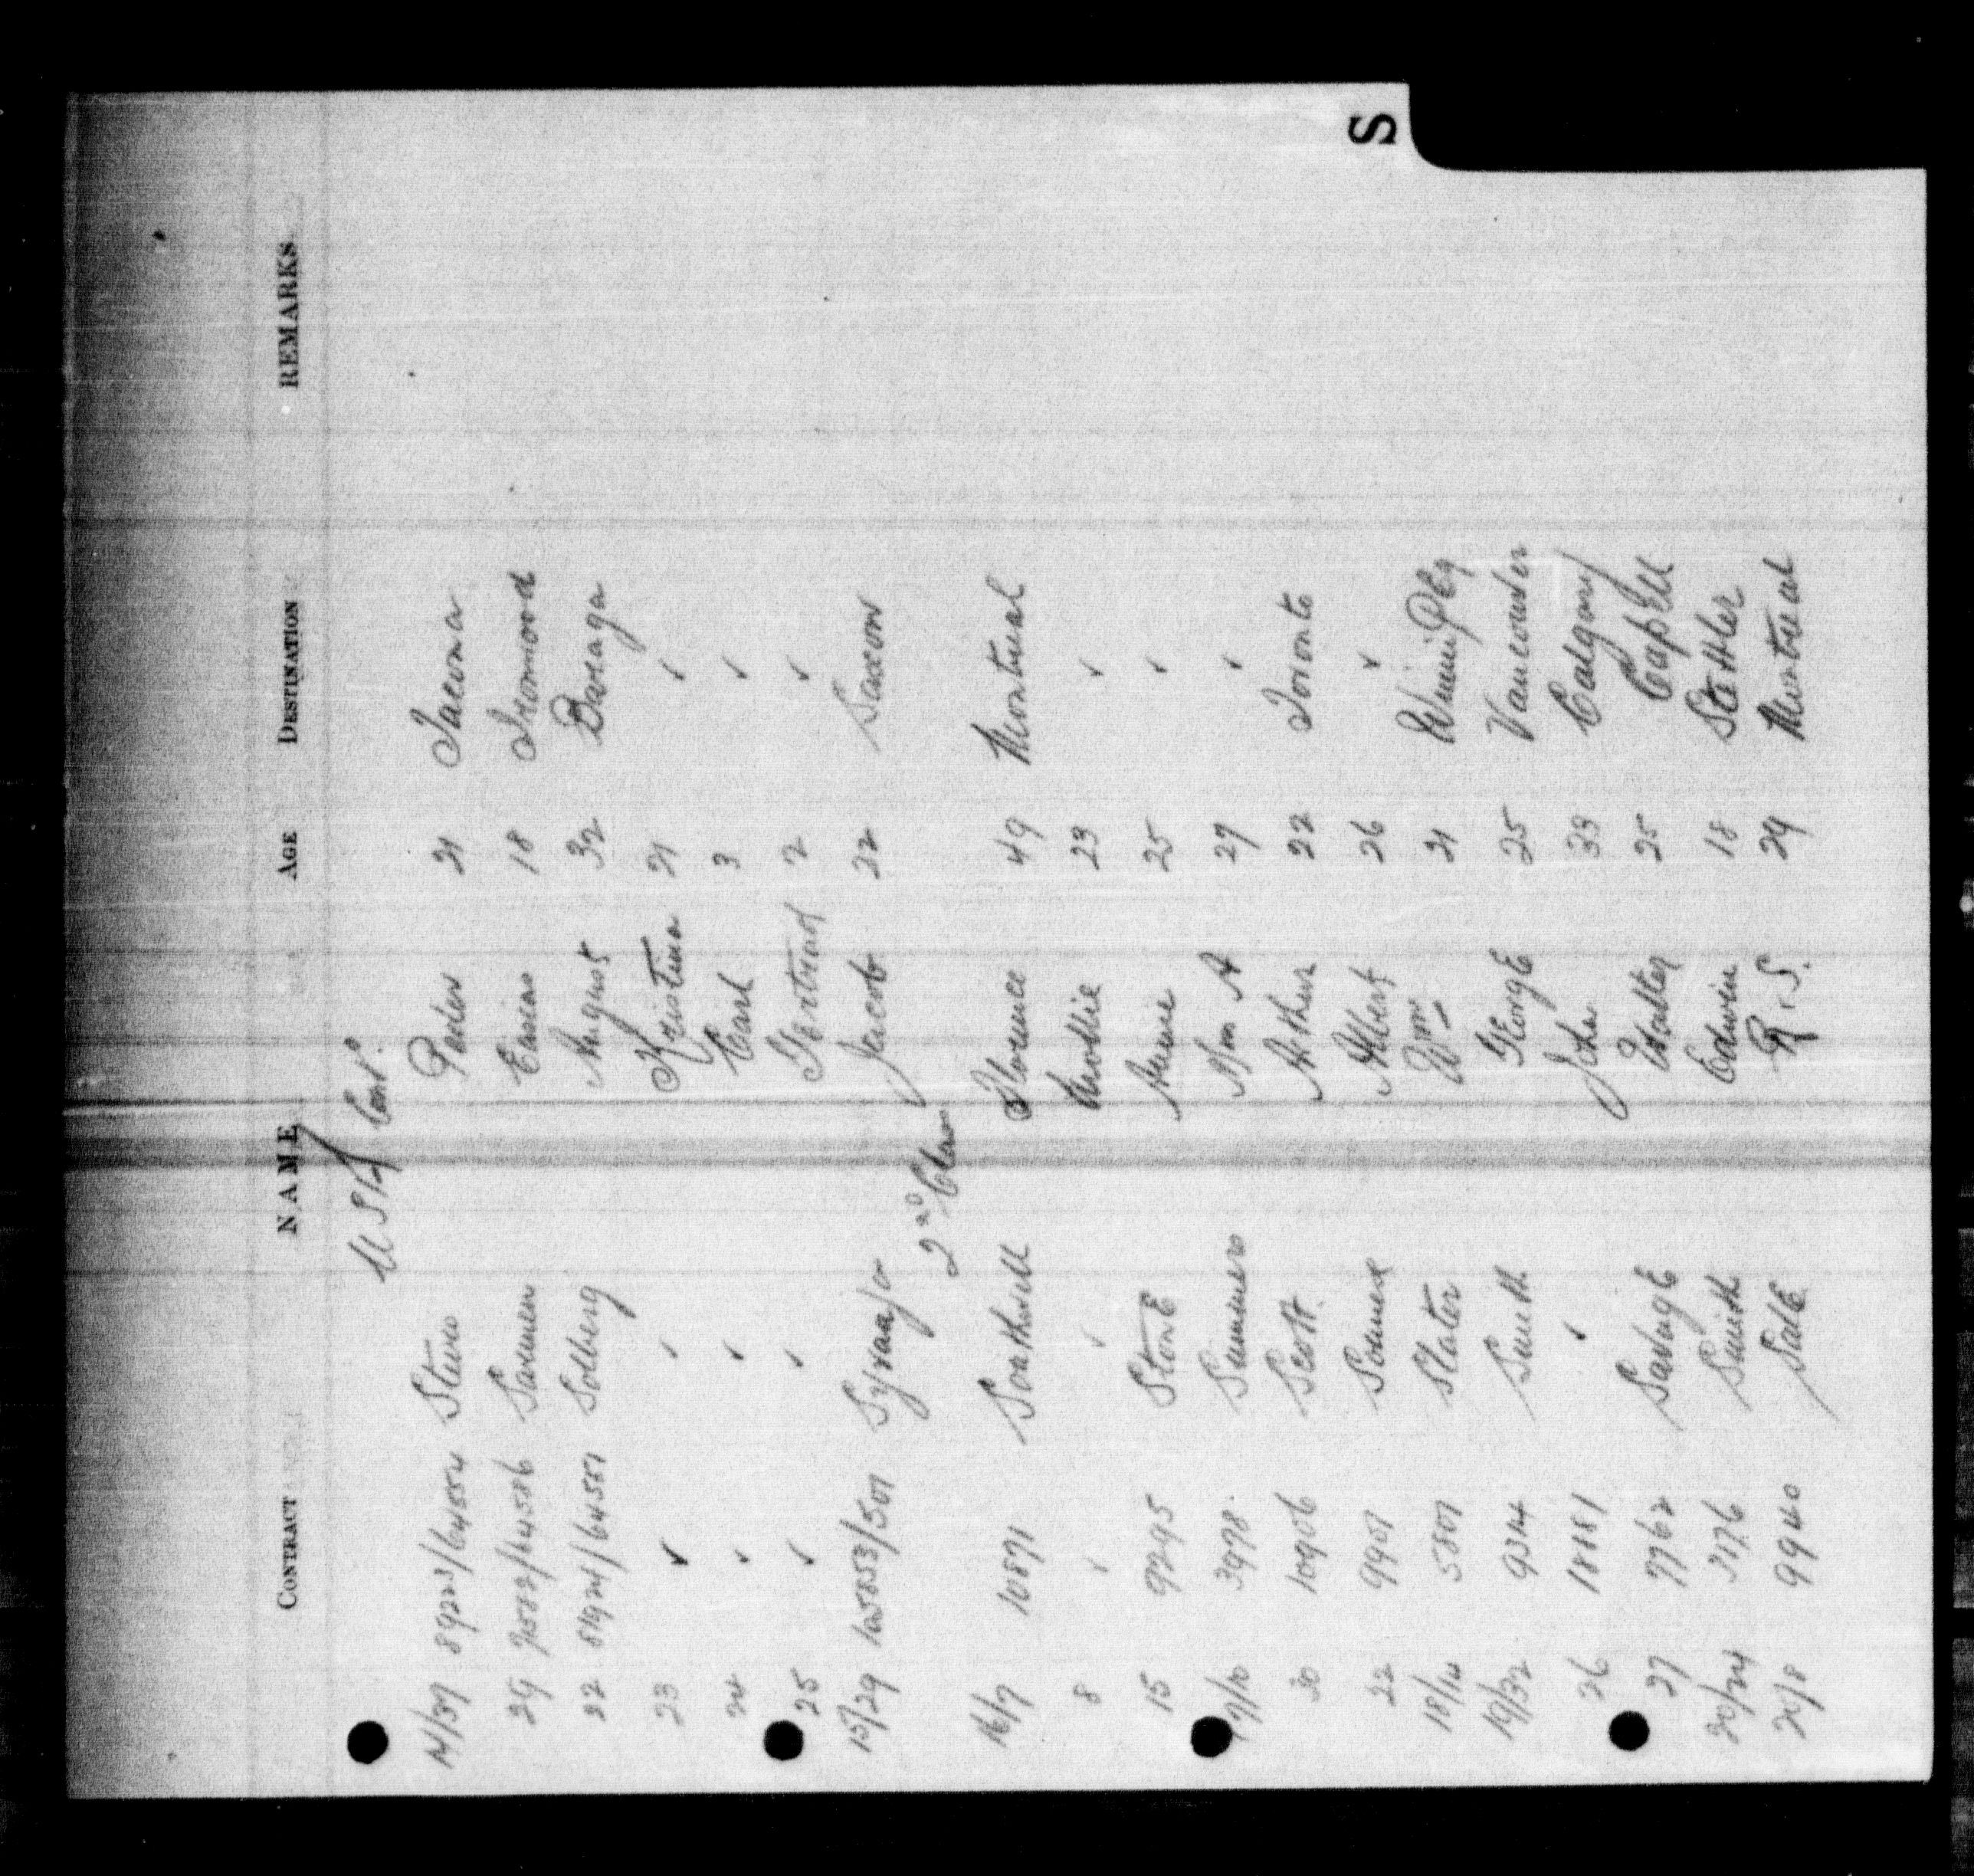 S
CONTRACT NAME AGE DESTINATION REMARKS
USA Cont.
14/37 89223/64554 Peder 21 Tacoma
29 18 Ironwood
22 81924/64557 Solberg August 32 Baraga
23 ✓ ✓ Kristina 21 ✓
24 ✓ ✓ Carl 3 ✓
25 ✓ ✓ 2 ✓
15/29 Jacob 22 Saxon
2nd Class
16/7 10871 Southwell Florence 49 Montreal
8 ✓ ✓ Mollie 23 ✓
15 9295 Stone Annie 25 ✓
17/10 3978 Summers Wm A 27 ✓
20 10906 Scott Arthur 22 Toronto
22 9907 Albert 26 ✓
18/14 5807 Slater Wm 21 Winnipeg
19/32 9314 Smith George 25 Vancouver
26 18881 ✓ John 33 Calgary
27 7762 Savage Walter 25
20/24 3176 Smith Edwin 18 Stettler
20/8 9940 Sale R.S. 29 Montreal